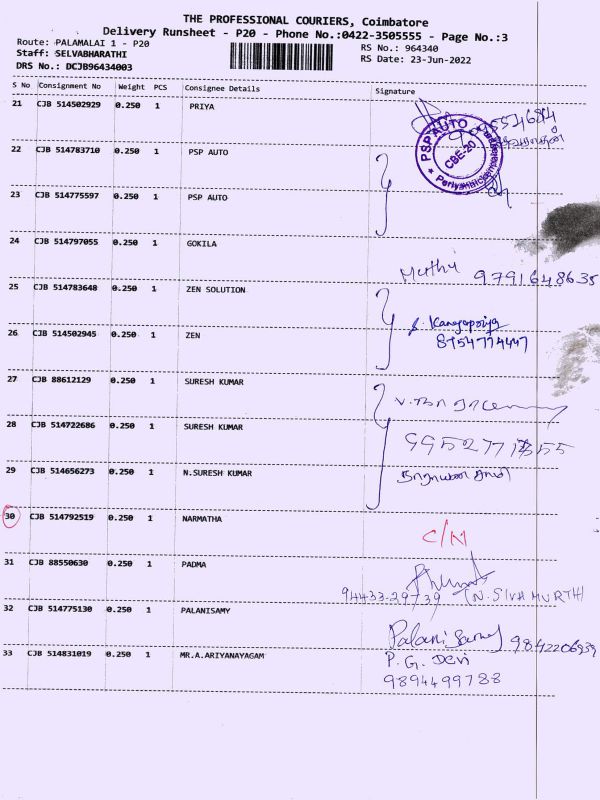 THE PROFESSIONAL COURIERS, Coimbatore
Delivery Runsheet - P20 - Phone No.:0422-3505555 - Page No.:3
Route: PALAMALAI 1 - P20
Staff: SELVABHARATHI
DRS No.: DCJB96434003
RS No.: 964340
RS Date: 23-Jun-2022
S No Consignment No Weight PCS Consignee Details Signature
21 CJB 514502929 0.250 1 PRIYA
PSP AUTO CBE-20
22 CJB 514783710 0.250 1 PSP AUTO
23 CJB 514775597 0.250 1 PSP AUTO
24 CJB 514797055 0.250 1 GOKILA
Muthu 9791648635
25 CJB 514783648 0.250 1 ZEN SOLUTION
26 CJB 514502945 0.250 1 ZEN
8754774447
27 CJB 88612129 0.250 1 SURESH KUMAR
28 CJB 514722686 0.250 1 SURESH KUMAR
29 CJB 514656273 0.250 1 N.SURESH KUMAR
30 CJB 514792519 0.250 1 NARMATHA
C/M
31 CJB 88550630 0.250 1 PADMA
94433-29739 (N. SIVA MURTHI
32 CJB 514775130 0.250 1 PALANISAMY
Palanisamy 9842206939
33 CJB 514831019 0.250 1 MR.A.ARIYANAYAGAM
P. G. Devi
9894499788